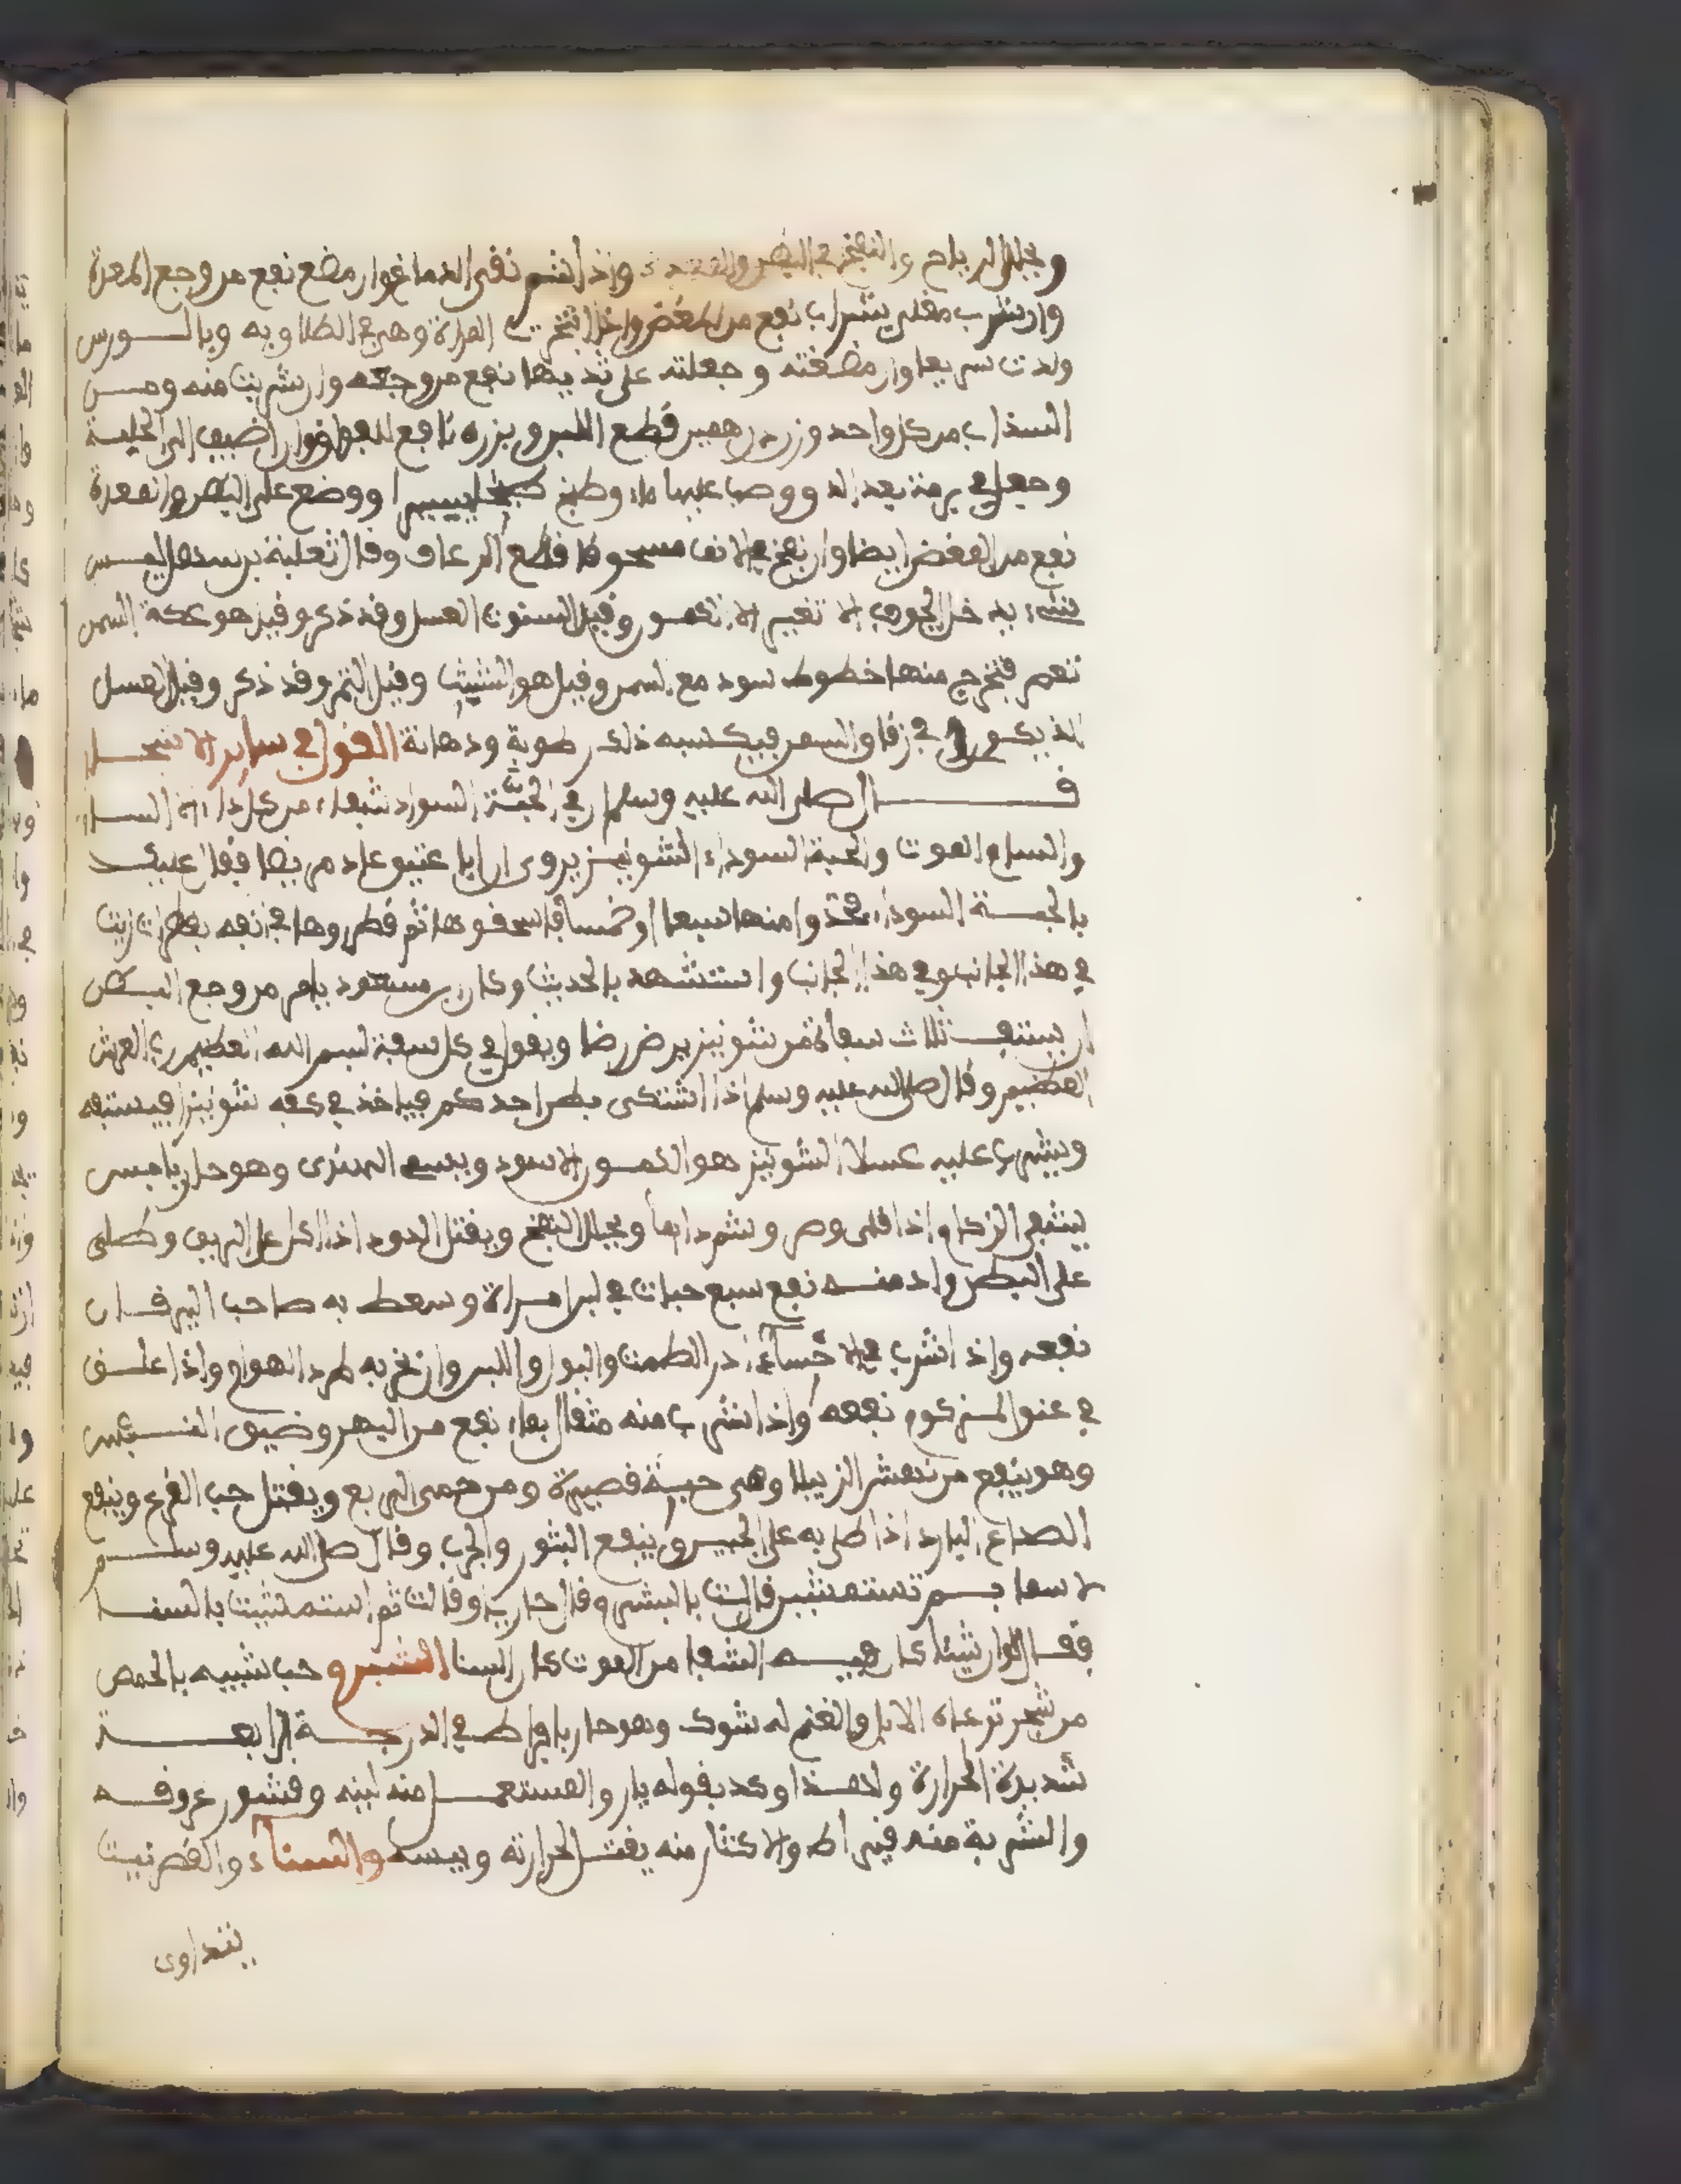 ويحلل الرياح والنفخ في البطن والمعدة وإذا شم نقى الدماغ وإن مضغ نفع من وجع المعدة
وإن شرب مقلى بشراب نفع من المغص وإذا تبخرت المراة وهي في الطلق به وبالورس
ولدت سريعا وإن مضغته وجعلته على ثدييها نفع من وجعه وإن شربت منه ومن
السذاب من كل واحد وزن درهمين قطع اللبن وبزره نافع للفواق وإن أضيف إلى الحلبة
وجعل في برمة بعد الدق وصب عليها ماء وطبخ ووضع على البطن والمعدة
نفع من المغص أيضا وإن نفخ في الانف مسحوقا قطع الرعاف وقال ثعلبة بن سهل ليس
شيء يدخل الجوف الا تغير الا الكمون وقيل السنوت العسل وقد ذكر وقيل هو عكة السمن
تعصر فتخرج منها خطوط سود مع السمن وقيل هو الشبث وقيل التمر وقد ذكر وقيل العسل
الذي يكون في زقاق السمن فيكسبه ذلك رطوبة ودهانة القول في ساير الاشجار
قال صلى الله عليه وسلم إن في الحبة السوداء شفاء من كل داء الا السام
والسام الموت والحبة السوداء الشونيز يروى أن ابا عتيق عاد مريضا فقال عليكم
بالحبة السوداء فخذوا منها سبعا أو خمسا فاسحقوها ثم قطروها في انفه بقطرات زيت
في هذا الجانب وفي هذا الجانب واستشهد بالحديث وكان ابن مسعود يامر من وجع البطن
أن يستف ثلاث سفات من شونيز يرض رضا ويقول في كل سفة بسم الله العظيم رب العرش
العظيم وقال صلى الله عليه وسلم إذا اشتكى بطن احدكم فياخذ في كفه شونيزا فيستفه
ويشرب عليه عسلا الشونيز هو الكمون الاسود ويسمى الهندى وهو حار يابس
يشفي الزكام إذا قلى وصر وشم دايما ويحلل النفخ ويقتل الدود اذا اكل على الريق وطلى
على البطن وإذ منه نقع سبع حبات في لبن امراة وسعط به صاحب اليرقان
نفعه وإذا شرب في الاحساء أدر الطمث والبول واللبن وإن بخر به طرد الهوام وإذا علق
في عنق المزكوم نفعه وإذا شرب منه مثقال بماء نفع من البهر وضيق النفس
وهو ينفع من نهش الرتيلا وهي حية قصيرة ومن حمى الربع ويقتل حب القرع وينفع
الصداع البارد اذا طلى به على الجبين وينفع البثور والجرب وقال صلى الله عليه وسلم
لاسما بم تستمشين قالت بالشبرم وقال حار يار وقالت ثم استمشيت بالسنا
فقال لو ان شيئا كان فيه الشفا من الموت كان السنا الشبرم حب شبيه بالحمص
من شجر ترعاه الابل والغنم له شوك وهو حار يابس في الدرجة الرابعة
شديدة الحرارة ولهذا وكد بقوله يار والمستعمل منه لبنه وقشور عروقه
والشربة منه قيراط والاكثار منه يقتل لحرارته ويبسه والسناء والقصد نبت
يتداوى